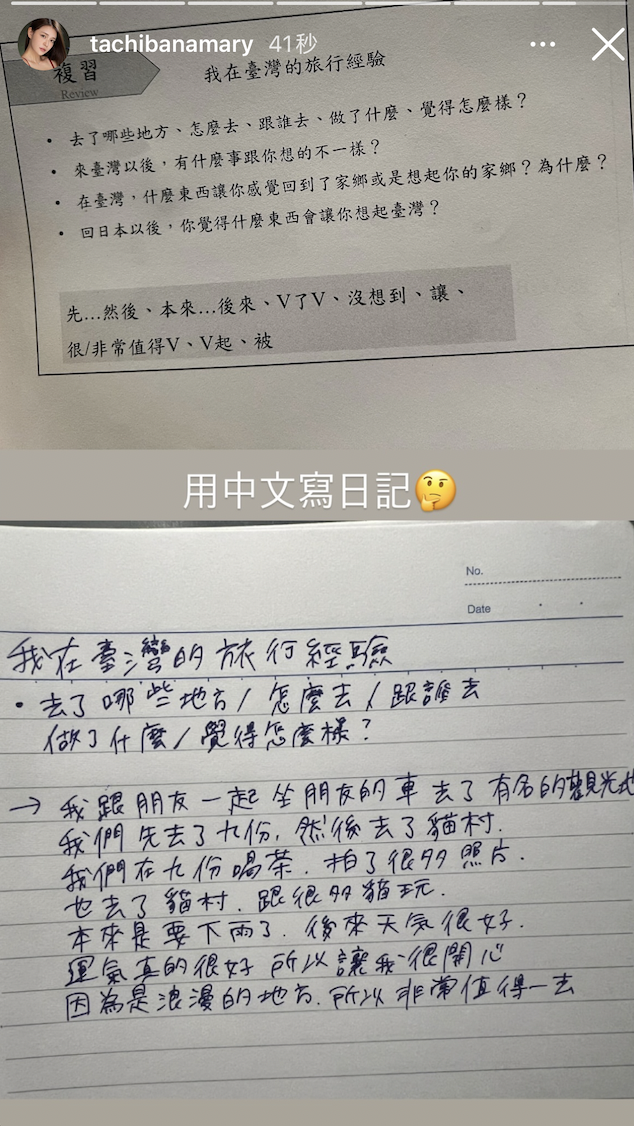 tachibanamary 41秒
複習
Review
我在臺灣的旅行經驗
• 去了哪些地方、怎麼去、跟誰去、做了什麼、覺得怎麼樣？
• 來臺灣以後，有什麼事跟你想的不一樣？
• 在臺灣，什麼東西讓你感覺回到了家鄉或是想起你的家鄉？為什麼？
• 回日本以後，你覺得什麼東西會讓你想起臺灣？
先…然後、本來…後來、V了V、沒想到、讓、
很/非常值得V、V起、被
用中文寫日記🤔
No.
Date
我在臺灣的旅行經驗
• 去了哪些地方/怎麼去/跟誰去
做了什麼/覺得怎麼樣？
→ 我跟朋友一起坐朋友的車去了有名的觀光地
我們先去了九份，然後去了貓村.
我們在九份喝茶.拍了很多照片.
也去了貓村.跟很多貓玩.
本來是要下雨了.後來天気很好.
運氣真的很好 所以讓我很開心
因為是浪漫的地方.所以非常值得一去